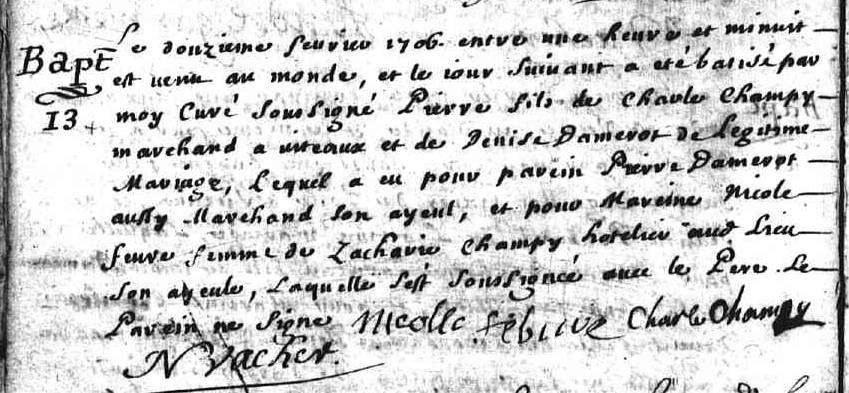 Le douzieme fevrier 1706. entre une heure et minuit
Bapt est venu au monde, et le iour suivant a eté batisé par
13 moy Curé soussigné Pierre fils de Charle Champy
marchand a viteaux et de Denise Damerot de Legitime
Mariage, Lequel a eu pour parein Pierre Damerot
aussy Marchand son ayeul, et pour Mareine Nicole
feuvre femme de Zacharie Champy hotelier aud Lieu
son ayeule, Laquelle s'est soussignée avec le Pere. Le
Parein ne signe Nicolle febuve Charle Champy
N Vacher.